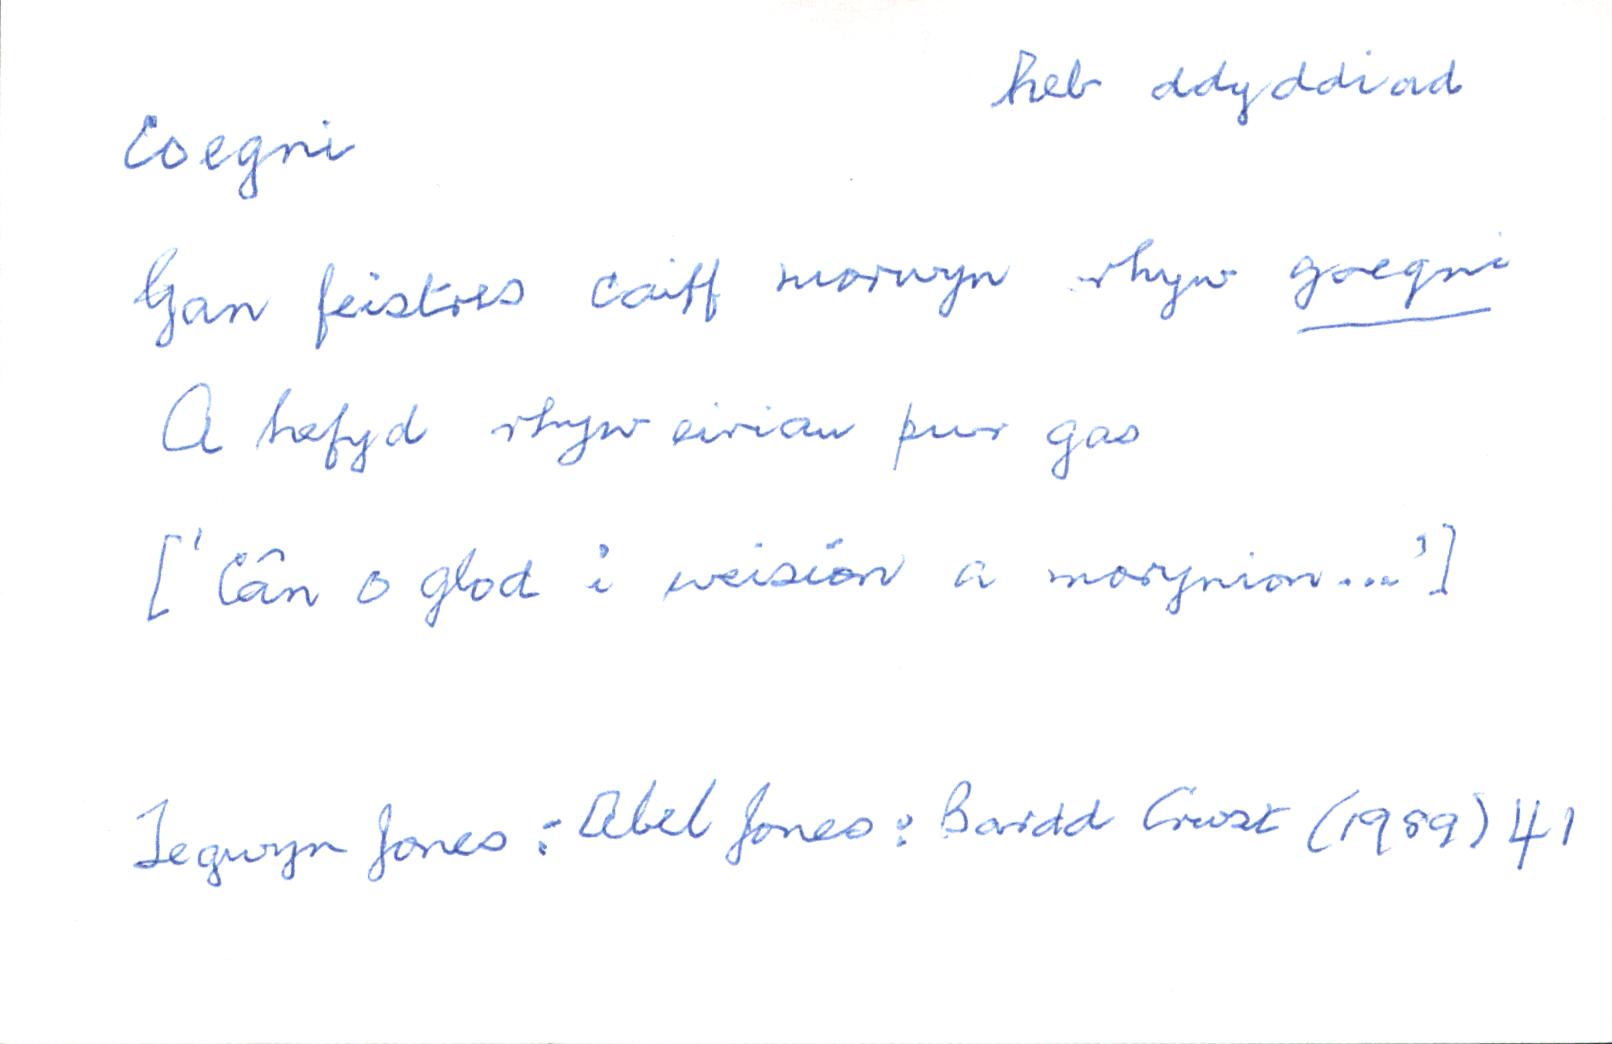 heb ddyddiad
Coegni
Gan feistres caiff morwyn rhyw goegni
A hefyd rhyw eiriau pur gas
['Cân o glod i weision a morynion...']
Tegwyn Jones: Abel Jones: Bardd Crwst (1989) 41